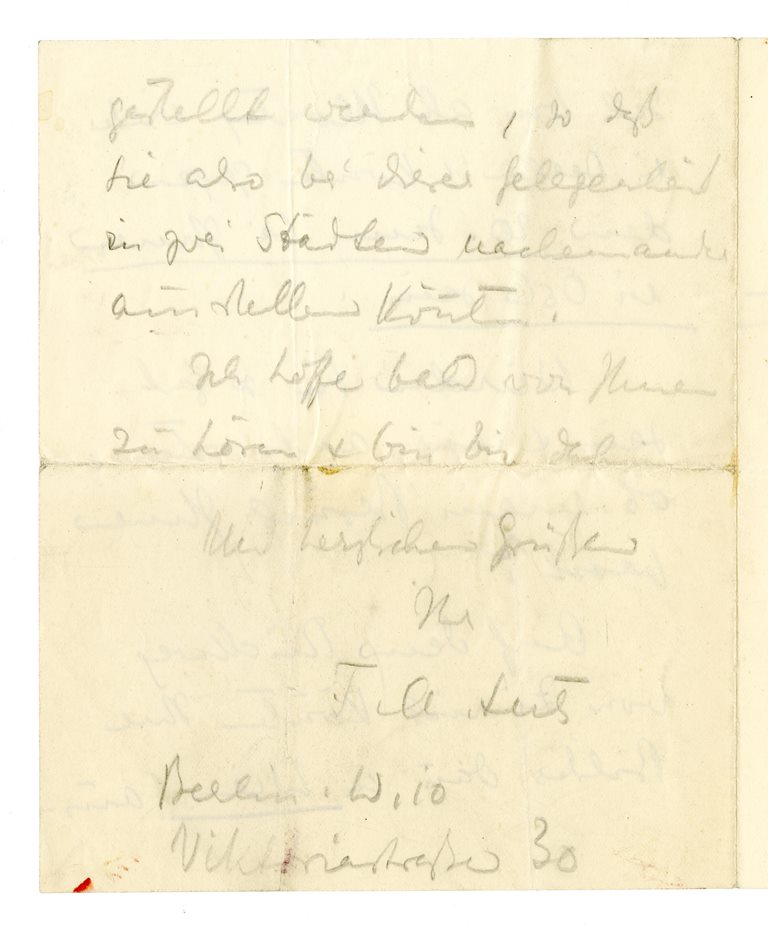 gestellt werden, so daß
Sie also bei dieser Gelegenheit
in zwei Städten nacheinander
ausstellen könnten.
Ich hoffe bald von Ihnen
zu hören + bin bis dahin
Mit herzlichen Grüßen
Ihr
F. A. Lutz
Berlin. W. 10
Viktoriastraße 30